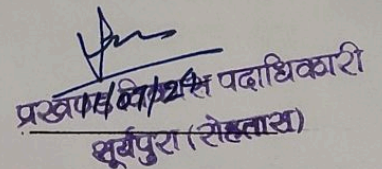 प्रखण्ड विकास पदाधिकारी
सूर्यपुरा (रोहतास)